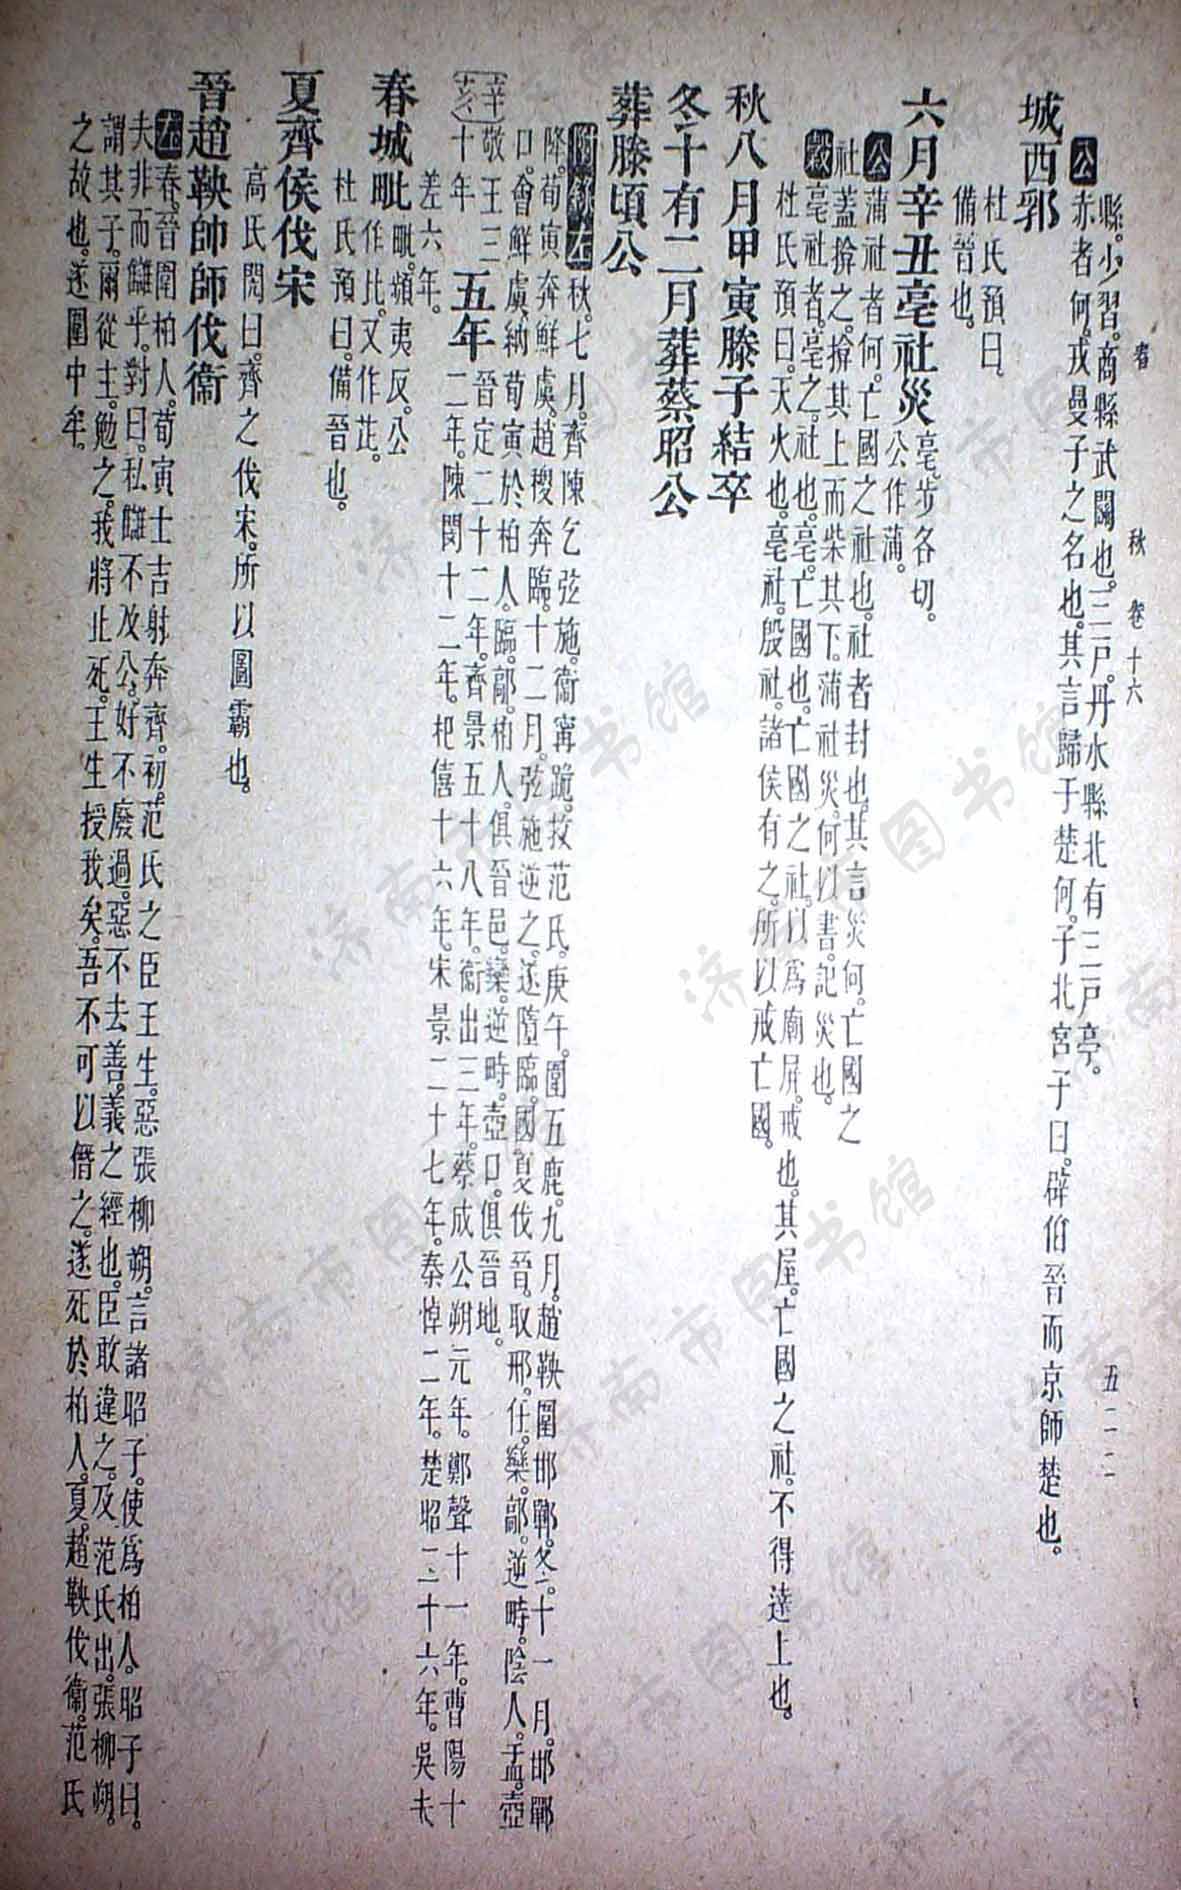 春秋 卷十六 五二二
縣。少習。商縣武關也。三戶。丹水縣北有三戶亭。
公 赤者何。戎曼子之名也。其言歸于楚何。子北宮子曰。辟伯晉而京師楚也。
城西郛
杜氏預曰。
備晉也。
六月辛丑亳社災 亳步各切。
公作蒲。
公 蒲社者何。亡國之社也。社者封也。其言災何。亡國之
社蓋揜之。揜其上而柴其下。蒲社災。何以書。記災也。
穀 亳社者。亳之社也。亳。亡國也。亡國之社。以爲廟屏。戒也。其屋。亡國之社。不得達上也。
杜氏預曰。天火也。亳社。殷社。諸侯有之。所以戒亡國。
秋八月甲寅滕子結卒
冬十有二月葬蔡昭公
葬滕頃公
附錄左 秋。七月。齊陳乞弦施。衞甯跪。救范氏。庚午。圍五鹿。九月。趙鞅圍邯鄲。冬。十一月。邯鄲
降。荀寅奔鮮虞。趙稷奔臨。十二月。弦施逆之。遂墮臨。國夏伐晉。取邢。任。欒。鄗。逆畤。陰人。盂。壺
口。會鮮虞。納荀寅於柏人。臨。鄗。柏人。俱晉邑。欒。逆畤。壺口。俱晉地。
敬王三十年 五年 晉定二十二年。齊景五十八年。衞出三年。蔡成公朔元年。鄭聲十一年。曹陽十
二年。陳閔十二年。杞僖十六年。宋景二十七年。秦悼二年。楚昭二十六年。吳夫
差六年。
春城毗 毗。頻夷反。公
作比。又作芘。
杜氏預曰。備晉也。
夏齊侯伐宋
高氏閌曰。齊之伐宋。所以圖霸也。
晉趙鞅帥師伐衞
左 春。晉圍柏人。荀寅士吉射奔齊。初。范氏之臣王生。惡張柳朔。言諸昭子。使爲柏人。昭子曰。
夫非而讎乎。對曰。私讎不及公。好不廢過。惡不去善。義之經也。臣敢違之。及范氏出。張柳朔。
謂其子。爾從主。勉之。我將止死。王生授我矣。吾不可以僭之。遂死於柏人。夏。趙鞅伐衞。范氏
之故也。遂圍中牟。